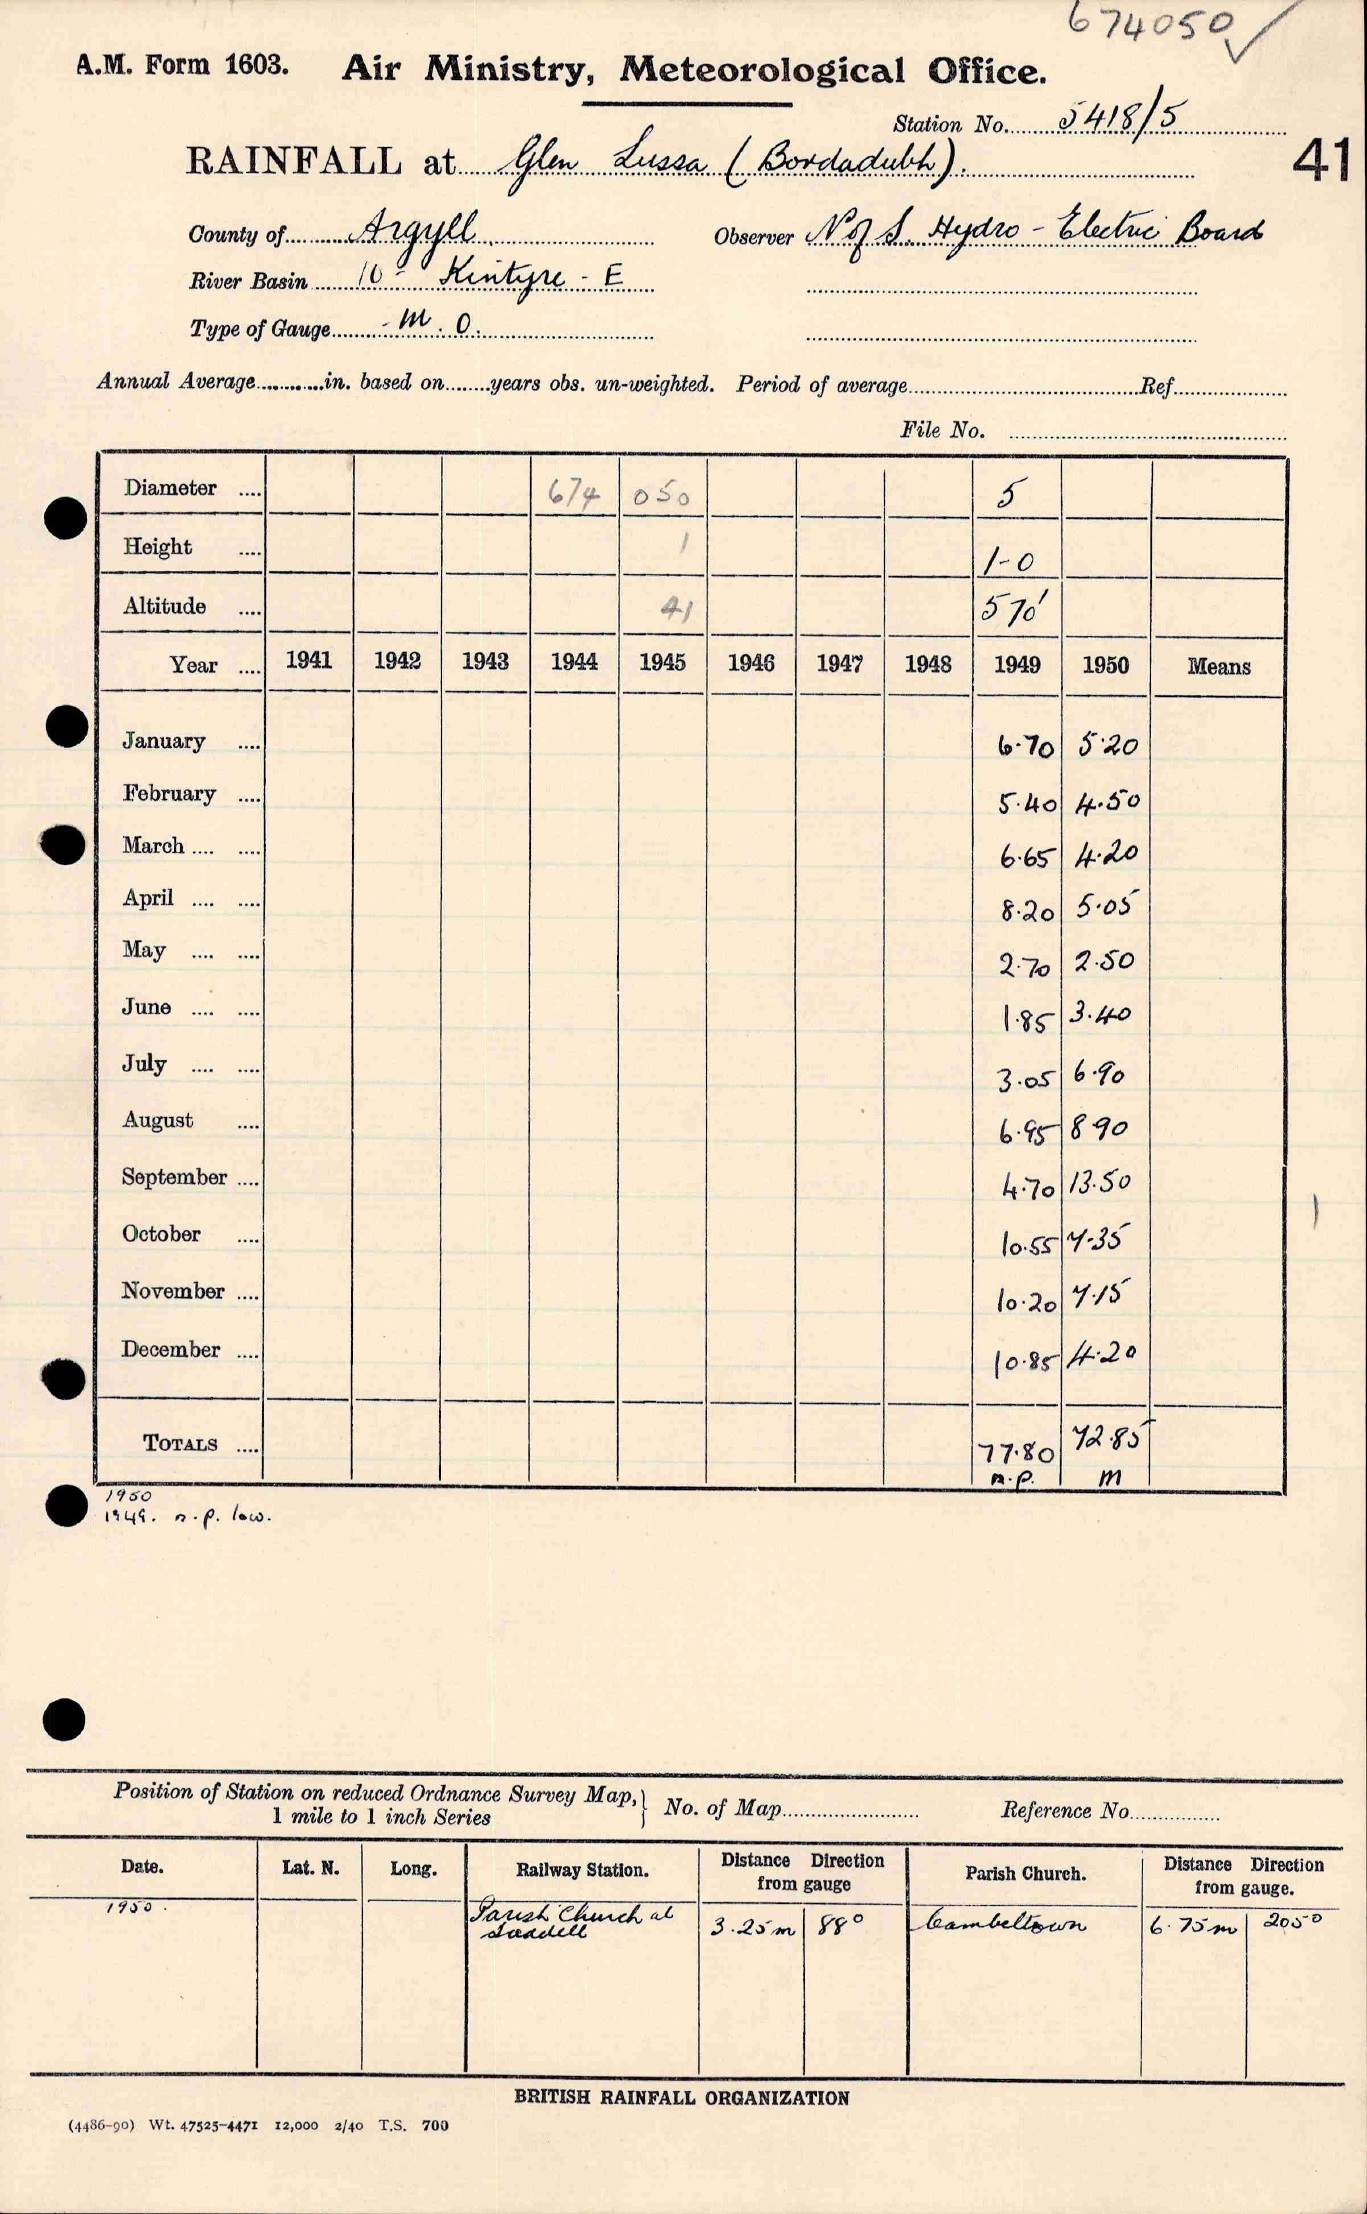 674050 ✓
A.M. Form 1603. Air Ministry, Meteorological Office.
Station No. 5418/5
41
RAINFALL at Glen Lussa (Bordadubh).
County of Argyll. Observer N of S. Hydro - Electric Board
River Basin 10 - Kintyre - E
Type of Gauge - M.O.
Annual Average..........in. based on........years obs. un-weighted. Period of average..........Ref..........
File No. ..........
Diameter .... 674 050 5
Height .... 1 1-0
Altitude .... 41 570'
Year .... 1941 1942 1943 1944 1945 1946 1947 1948 1949 1950 Means
January .... 6.70 5.20
February .... 5.40 4.50
March .... .... 6.65 4.20
April .... .... 8.20 5.05
May .... .... 2.70 2.50
June .... .... 1.85 3.40
July .... .... 3.05 6.90
August .... 6.95 8 90
September .... 4.70 13.50
October .... 10.55 7.35
November .... 10.20 7.15
December .... 10.85 4.20
TOTALS .... 77.80 72.85
n.p. m
1950
1949. n.p. low.
Position of Station on reduced Ordnance Survey Map, } No. of Map.......... Reference No..........
1 mile to 1 inch Series
Date. Lat. N. Long. Railway Station. Distance Direction from gauge Parish Church. Distance Direction from gauge.
1950. Parish Church at Saddell 3.25m 88° Cambeltown 6.75m 205°
BRITISH RAINFALL ORGANIZATION
(4486-90) Wt. 47525-4471 12,000 2/40 T.S. 700